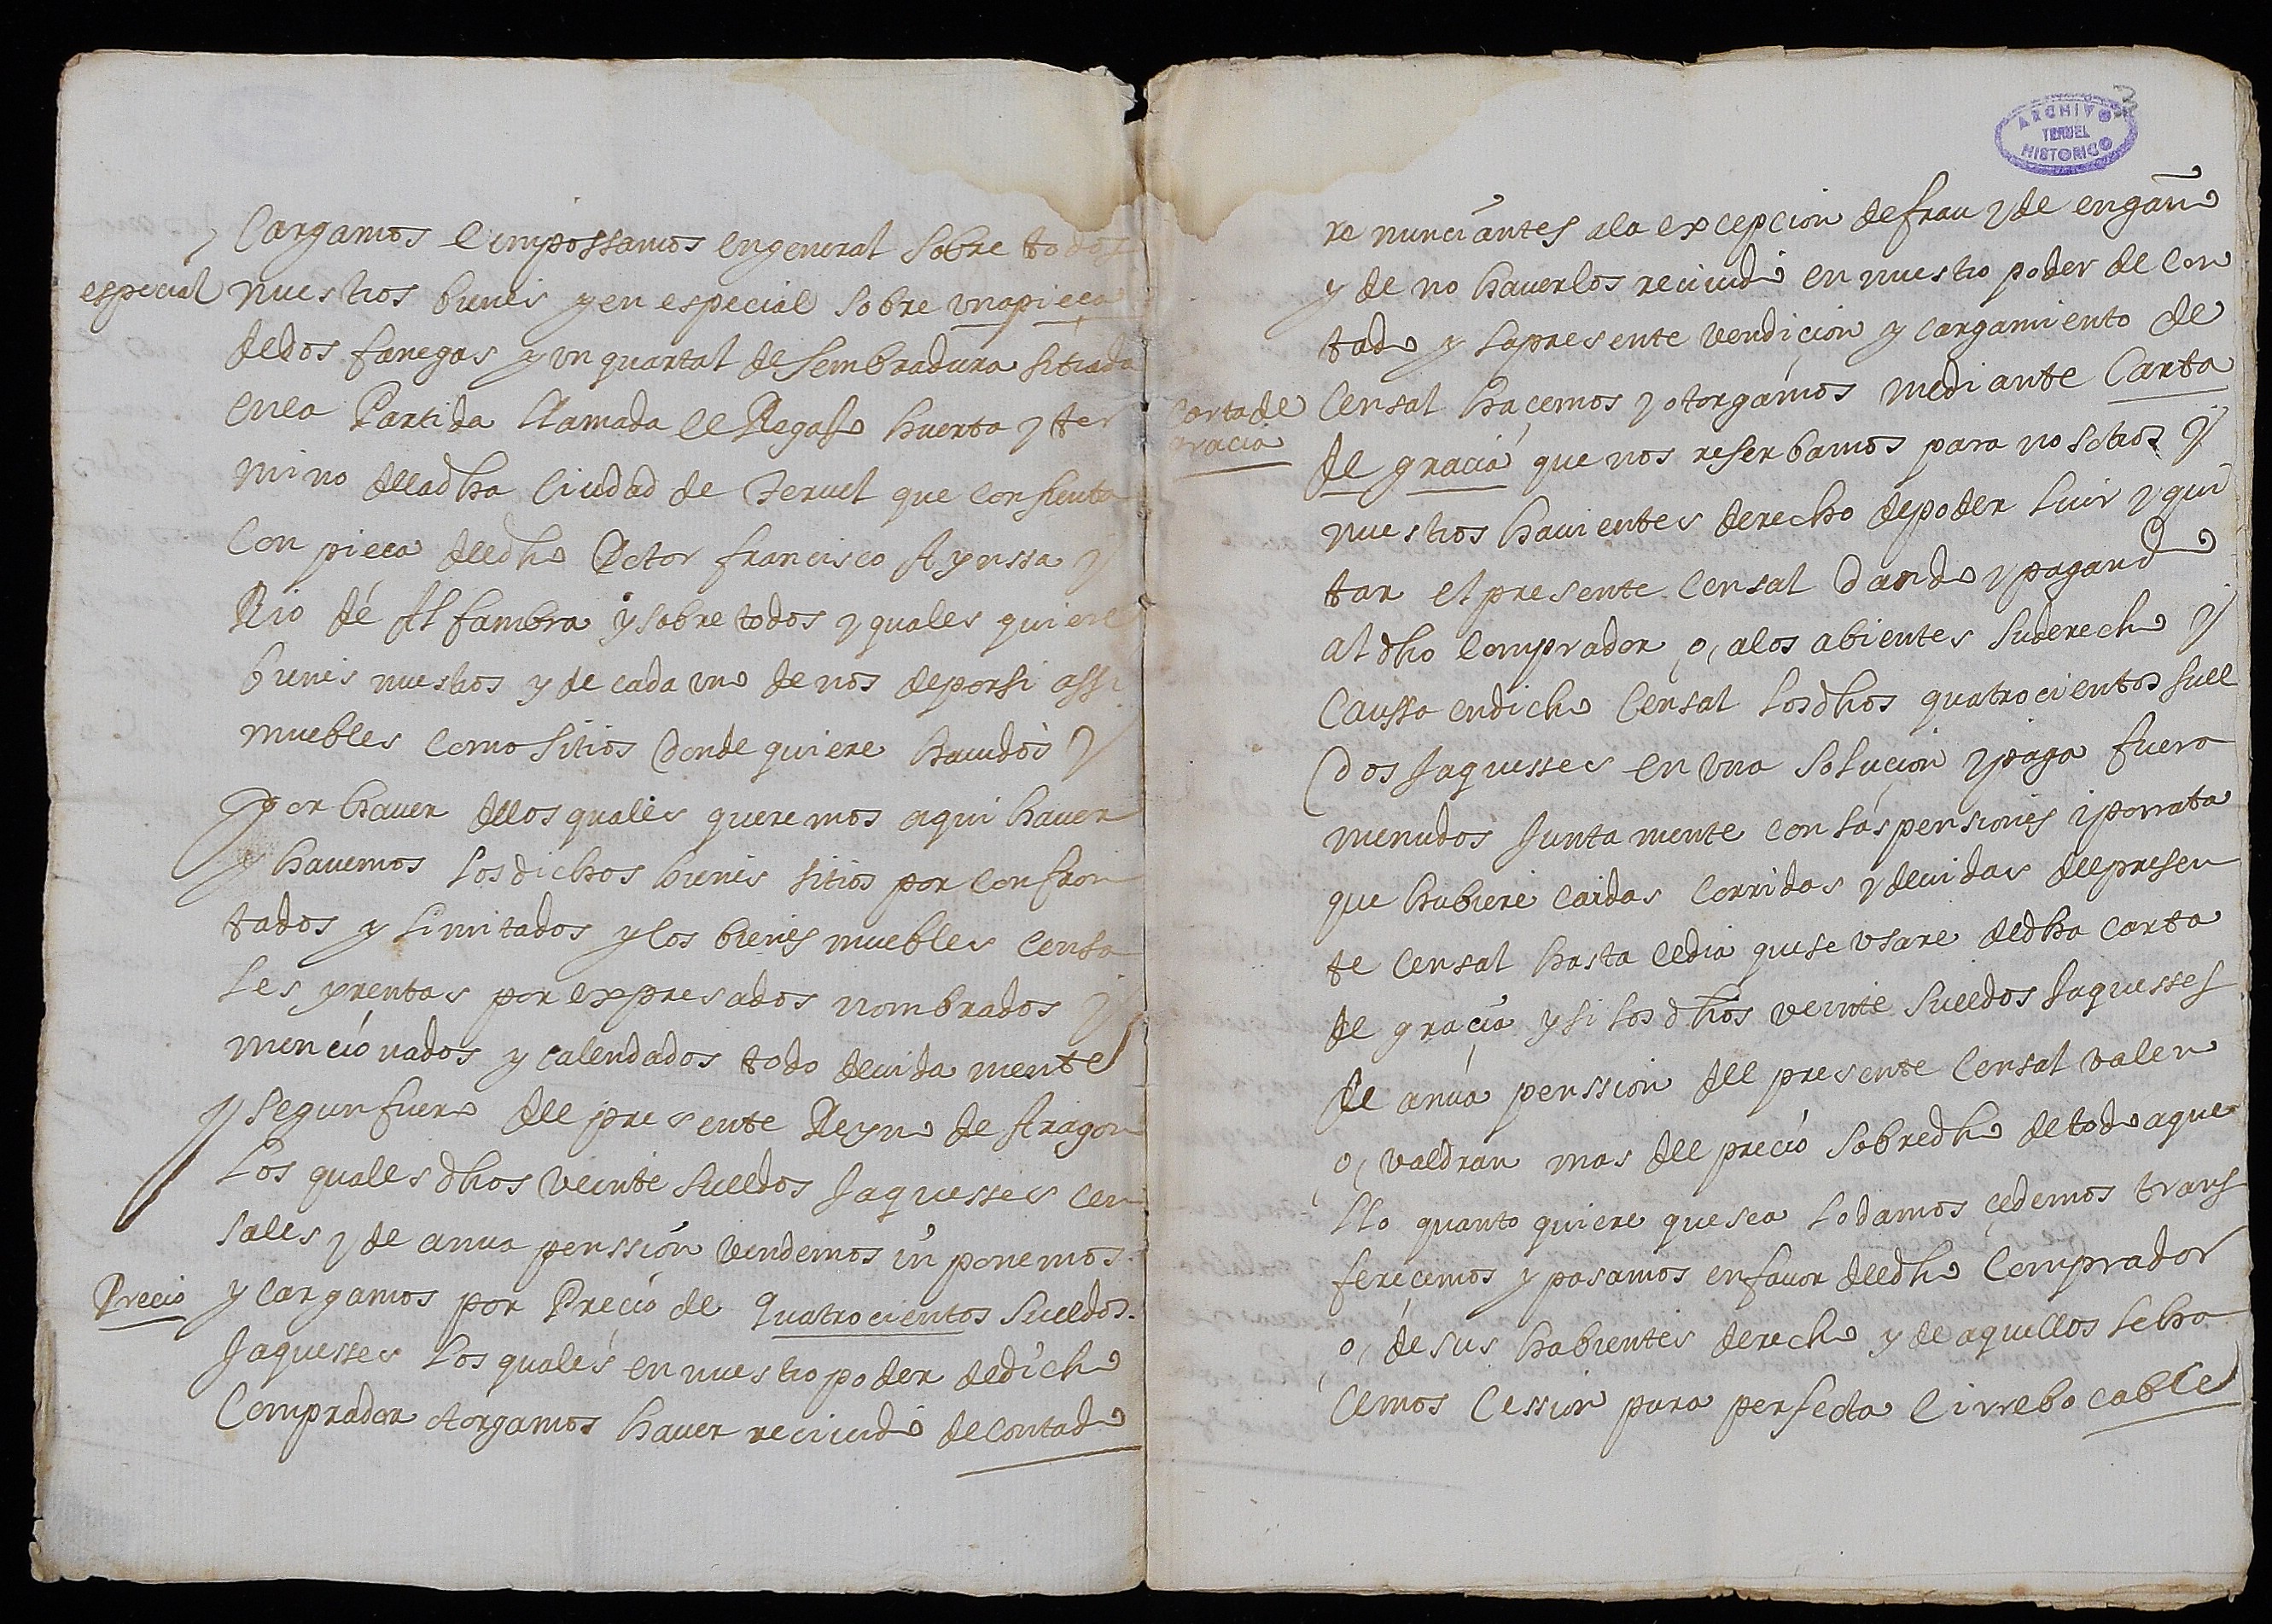 Cargamos e impossamos en general sobre todos
especial
nuestros bienes y en especial sobre vna pieça
de dos fanegas y vn quartal de sembradura sitiada
en la Partida llamada el Regajo huerta y ter
mino de la dha Ciudad de Teruel que confrenta
Con pieça del dho Dctor francisco Aynssa y
Rio de Alfambra y sobre todos y quales quiere
bienes nuestros y de cada vno de nos de por si assi
muebles como sitios donde quiere hauidos y
por hauer de los quales queremos aqui hauer
y hauemos los dichos bienes sitios por confron
tados y limitados y los bienes muebles censa
les y rentas por expresados nombrados y
mencionados y calendados todo deuida mente
y segun fuero del presente Reyno de Aragon
Los quales dhos veinte sueldos Jaquesses cen
sales y de anua penssion vendemos in ponemos
Precio
y cargamos por Precio de quatrocientos sueldos
Jaquesses los quales en nuestro poder de dicho
Comprador otorgamos hauer reciuido de contado
ARCHIVO
TERUEL
HISTORICO
re nunciantes a la excepcion de frau y de engaño
y de no hauerlos reciuido en nuestro poder de con
tado y la presente vendicion y cargamiento de
Carta de
gracia
Censal hacemos y otorgamos mediante Carta
de gracia que nos reserbamos para nosotros y
nuestros hauientes derecho de poder luir y qui
tar el presente Censal dando y pagando
al dho Comprador o, a los abientes su derecho y
Caussa en dicho Censal los dhos quatrocientos suel
dos Jaquesses en vna solucion y paga fuera
menudos Junta mente con las pensiones i porrata
que hubiere caidas corridas y deuidas del presen
te Censal hasta el dia que se vsare de dha carta
de gracia y si los dhos veinte sueldos Jaquesses
de anua penssion del presente Censal valen
o, valdran mas del precio sobredho de todo aque
llo quanto quiere que sea lo damos çedemos trans
ferecemos y pasamos en fauor del dho Comprador
o, de sus habientes derecho y de aquellos le ha
cemos Cession pura perfecta e irrebocable